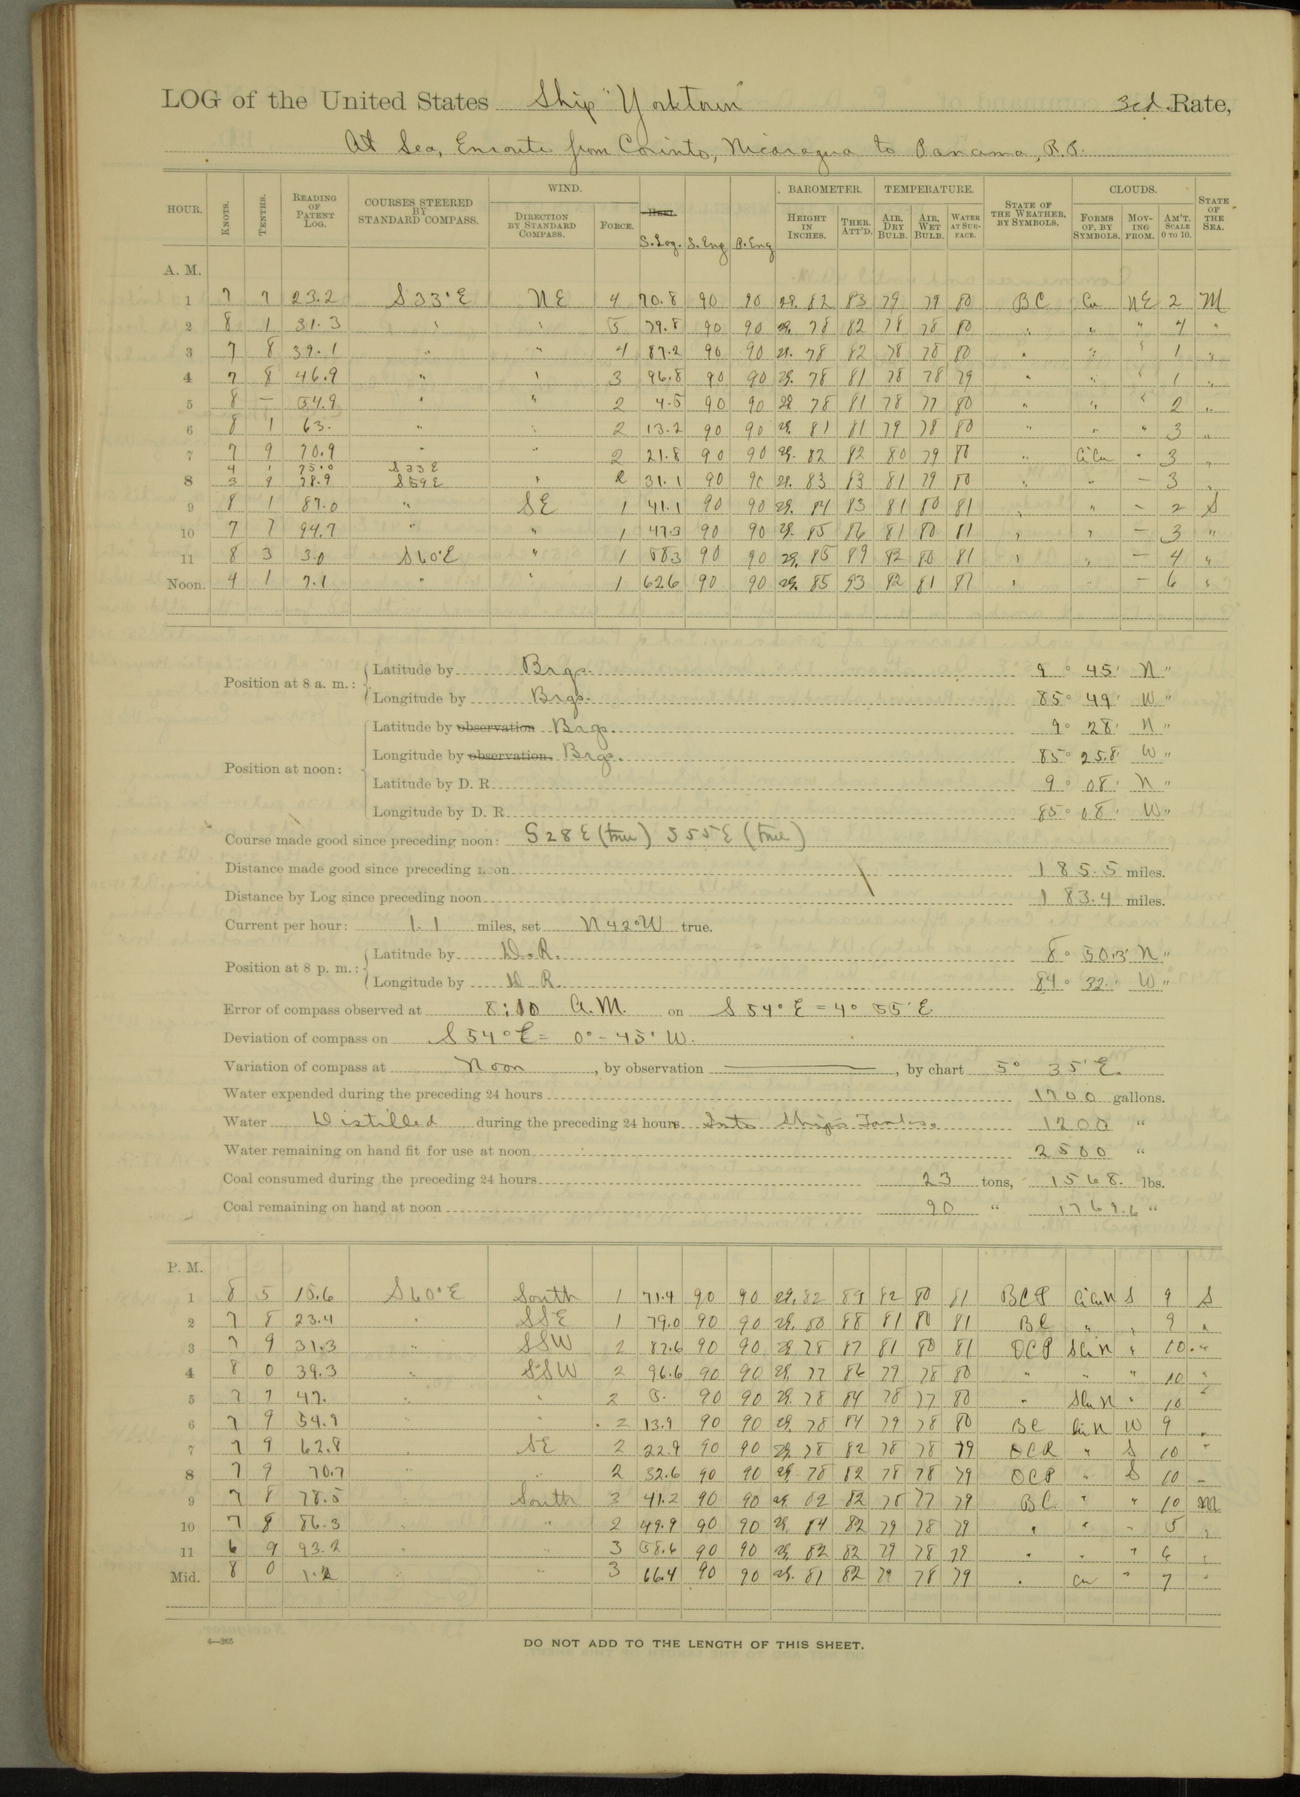 LOG of the United States Ship "Yorktown" 3rd Rate,
At Sea, Enroute from Corinto, Nicaragua to Panama, R.P.
HOUR. KNOTS. TENTHS. READING OF PATENT LOG. COURSES STEERED BY STANDARD COMPASS. WIND. DIRECTION BY STANDARD COMPASS. FORCE. S. Log. S. Eng P. Eng BAROMETER. HEIGHT IN INCHES. THER. ATT'D. TEMPERATURE. AIR, DRY BULB. AIR, WET BULB. WATER AT SURFACE. STATE OF THE WEATHER, BY SYMBOLS. CLOUDS. FORMS OF, BY SYMBOLS. MOVING FROM. AM'T. SCALE 0 TO 10. STATE OF THE SEA.
A. M.
1 7 7 23.2 S 33°E NE 4 70.8 90 90 29. 82 83 79 79 80 BC Cu NE 2 M
2 8 1 31.3 " " 5 79.8 90 90 29. 78 82 78 78 80 " " " 4 "
3 7 8 39.1 " " 4 87.2 90 90 29. 78 82 78 78 80 " " " 1 "
4 7 8 46.9 " " 3 96.8 90 90 29. 78 81 78 78 79 " " " 1 "
5 8 — 54.9 " " 2 4.5 90 90 29. 78 81 78 77 80 " " " 2 "
6 8 1 63. " " 2 13.2 90 90 29. 81 81 79 78 80 " " " 3 "
7 7 9 70.9 " " 2 21.8 90 90 29. 82 82 80 79 80 " CiCu " 3 "
4 1 75.0 S 33 E
8 3 9 78.9 S 59 E " 2 31.1 90 90 29. 83 83 81 79 80 " " — 3 "
9 8 1 87.0 " SE 1 41.1 90 90 29. 84 83 81 80 81 " " — 2 S
10 7 7 94.7 " " 1 47.3 90 90 29. 85 86 81 80 81 " " — 3 "
11 8 3 3.0 S 60°E " 1 583 90 90 29. 85 89 82 80 81 " " — 4 "
Noon. 4 1 7.1 " " 1 626 90 90 29. 85 93 82 81 82 " — 6 "
Position at 8 a. m.: Latitude by Brgs. 9° 45' N "
Longitude by Brgs. 85° 49' W "
Position at noon: Latitude by observation Brgs. 9° 28' N "
Longitude by observation. Brgs. 85° 25.8 W "
Latitude by D. R. 9° 08' N "
Longitude by D. R. 85° 08' W "
Course made good since preceding noon: S 28 E (true) S 55 E (true)
Distance made good since preceding noon 185.5 miles.
Distance by Log since preceding noon 183.4 miles.
Current per hour: 1.1 miles, set N 42° W true.
Position at 8 p. m.: Latitude by D. R. 8° 50.3' N "
Longitude by D R. 84° 32' W "
Error of compass observed at 8:10 A.M. on S 54° E = 4° 55' E
Deviation of compass on S 54° E = 0° - 45' W.
Variation of compass at Noon, by observation ———, by chart 5° 35' E.
Water expended during the preceding 24 hours 1700 gallons.
Water Distilled during the preceding 24 hours Into Ship's Tanks. 1200 "
Water remaining on hand fit for use at noon 2500 "
Coal consumed during the preceding 24 hours 23 tons, 1568. lbs.
Coal remaining on hand at noon 90 " 1769.6 "
P. M.
1 8 5 15.6 S 60°E South 1 71.4 90 90 29. 82 89 82 80 81 BCP CiCuN S 9 S
2 7 8 23.4 " SSE 1 79.0 90 90 29. 80 88 81 80 81 BC " " 9 "
3 7 9 31.3 " SSW 2 87.6 90 90 29. 78 87 81 80 81 OCP N " 10 "
4 8 0 39.3 " SSW 2 96.6 90 90 29. 77 86 79 78 80 " " " 10 "
5 7 7 47. " 2 5. 90 90 29. 78 84 78 77 80 " N " 10
6 7 9 54.9 " 2 13.9 90 90 29. 78 84 79 78 80 BC N W 9 "
7 7 9 62.8 SE 2 22.9 90 90 29. 78 82 78 78 79 OCR " S 10 "
8 7 9 70.7 " 2 32.6 90 90 29. 78 82 78 78 79 OCP " S 10 "
9 7 8 78.5 South 3 41.2 90 90 29. 82 82 78 77 79 BC " " 10 M
10 7 8 86.3 " 2 49.9 90 90 29. 84 82 79 78 79 " " " 5 "
11 6 9 93.2 " 3 58.6 90 90 29. 82 82 79 78 79 " " " 6 "
Mid. 8 0 1.2 " 3 66.4 90 90 29. 81 82 79 78 79 " Cu " 7 "
4—265
DO NOT ADD TO THE LENGTH OF THIS SHEET.